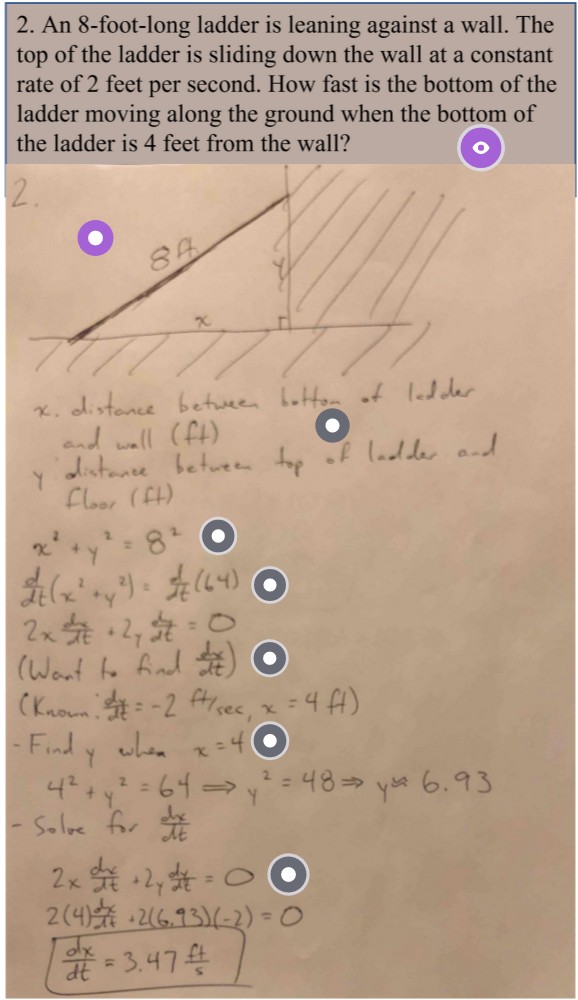 2. An 8-foot-long ladder is leaning against a wall. The
top of the ladder is sliding down the wall at a constant
rate of 2 feet per second. How fast is the bottom of the
ladder moving along the ground when the bottom of
the ladder is 4 feet from the wall?
2.
8 ft
y
x
x: distance between bottom of ladder
and wall (ft)
y: distance between top of ladder and
floor (ft)
x² + y² = 8²
d/dt(x² + y²) = d/dt(64)
2x dx/dt + 2y dy/dt = 0
(Want to find dx/dt)
(Known: dy/dt = -2 ft/sec, x = 4 ft)
- Find y when x = 4
4² + y² = 64 ⟹ y² = 48 ⟹ y ≈ 6.93
- Solve for dx/dt
2x dx/dt + 2y dy/dt = 0
2(4) dx/dt + 2(6.93)(-2) = 0
dx/dt = 3.47 ft/s